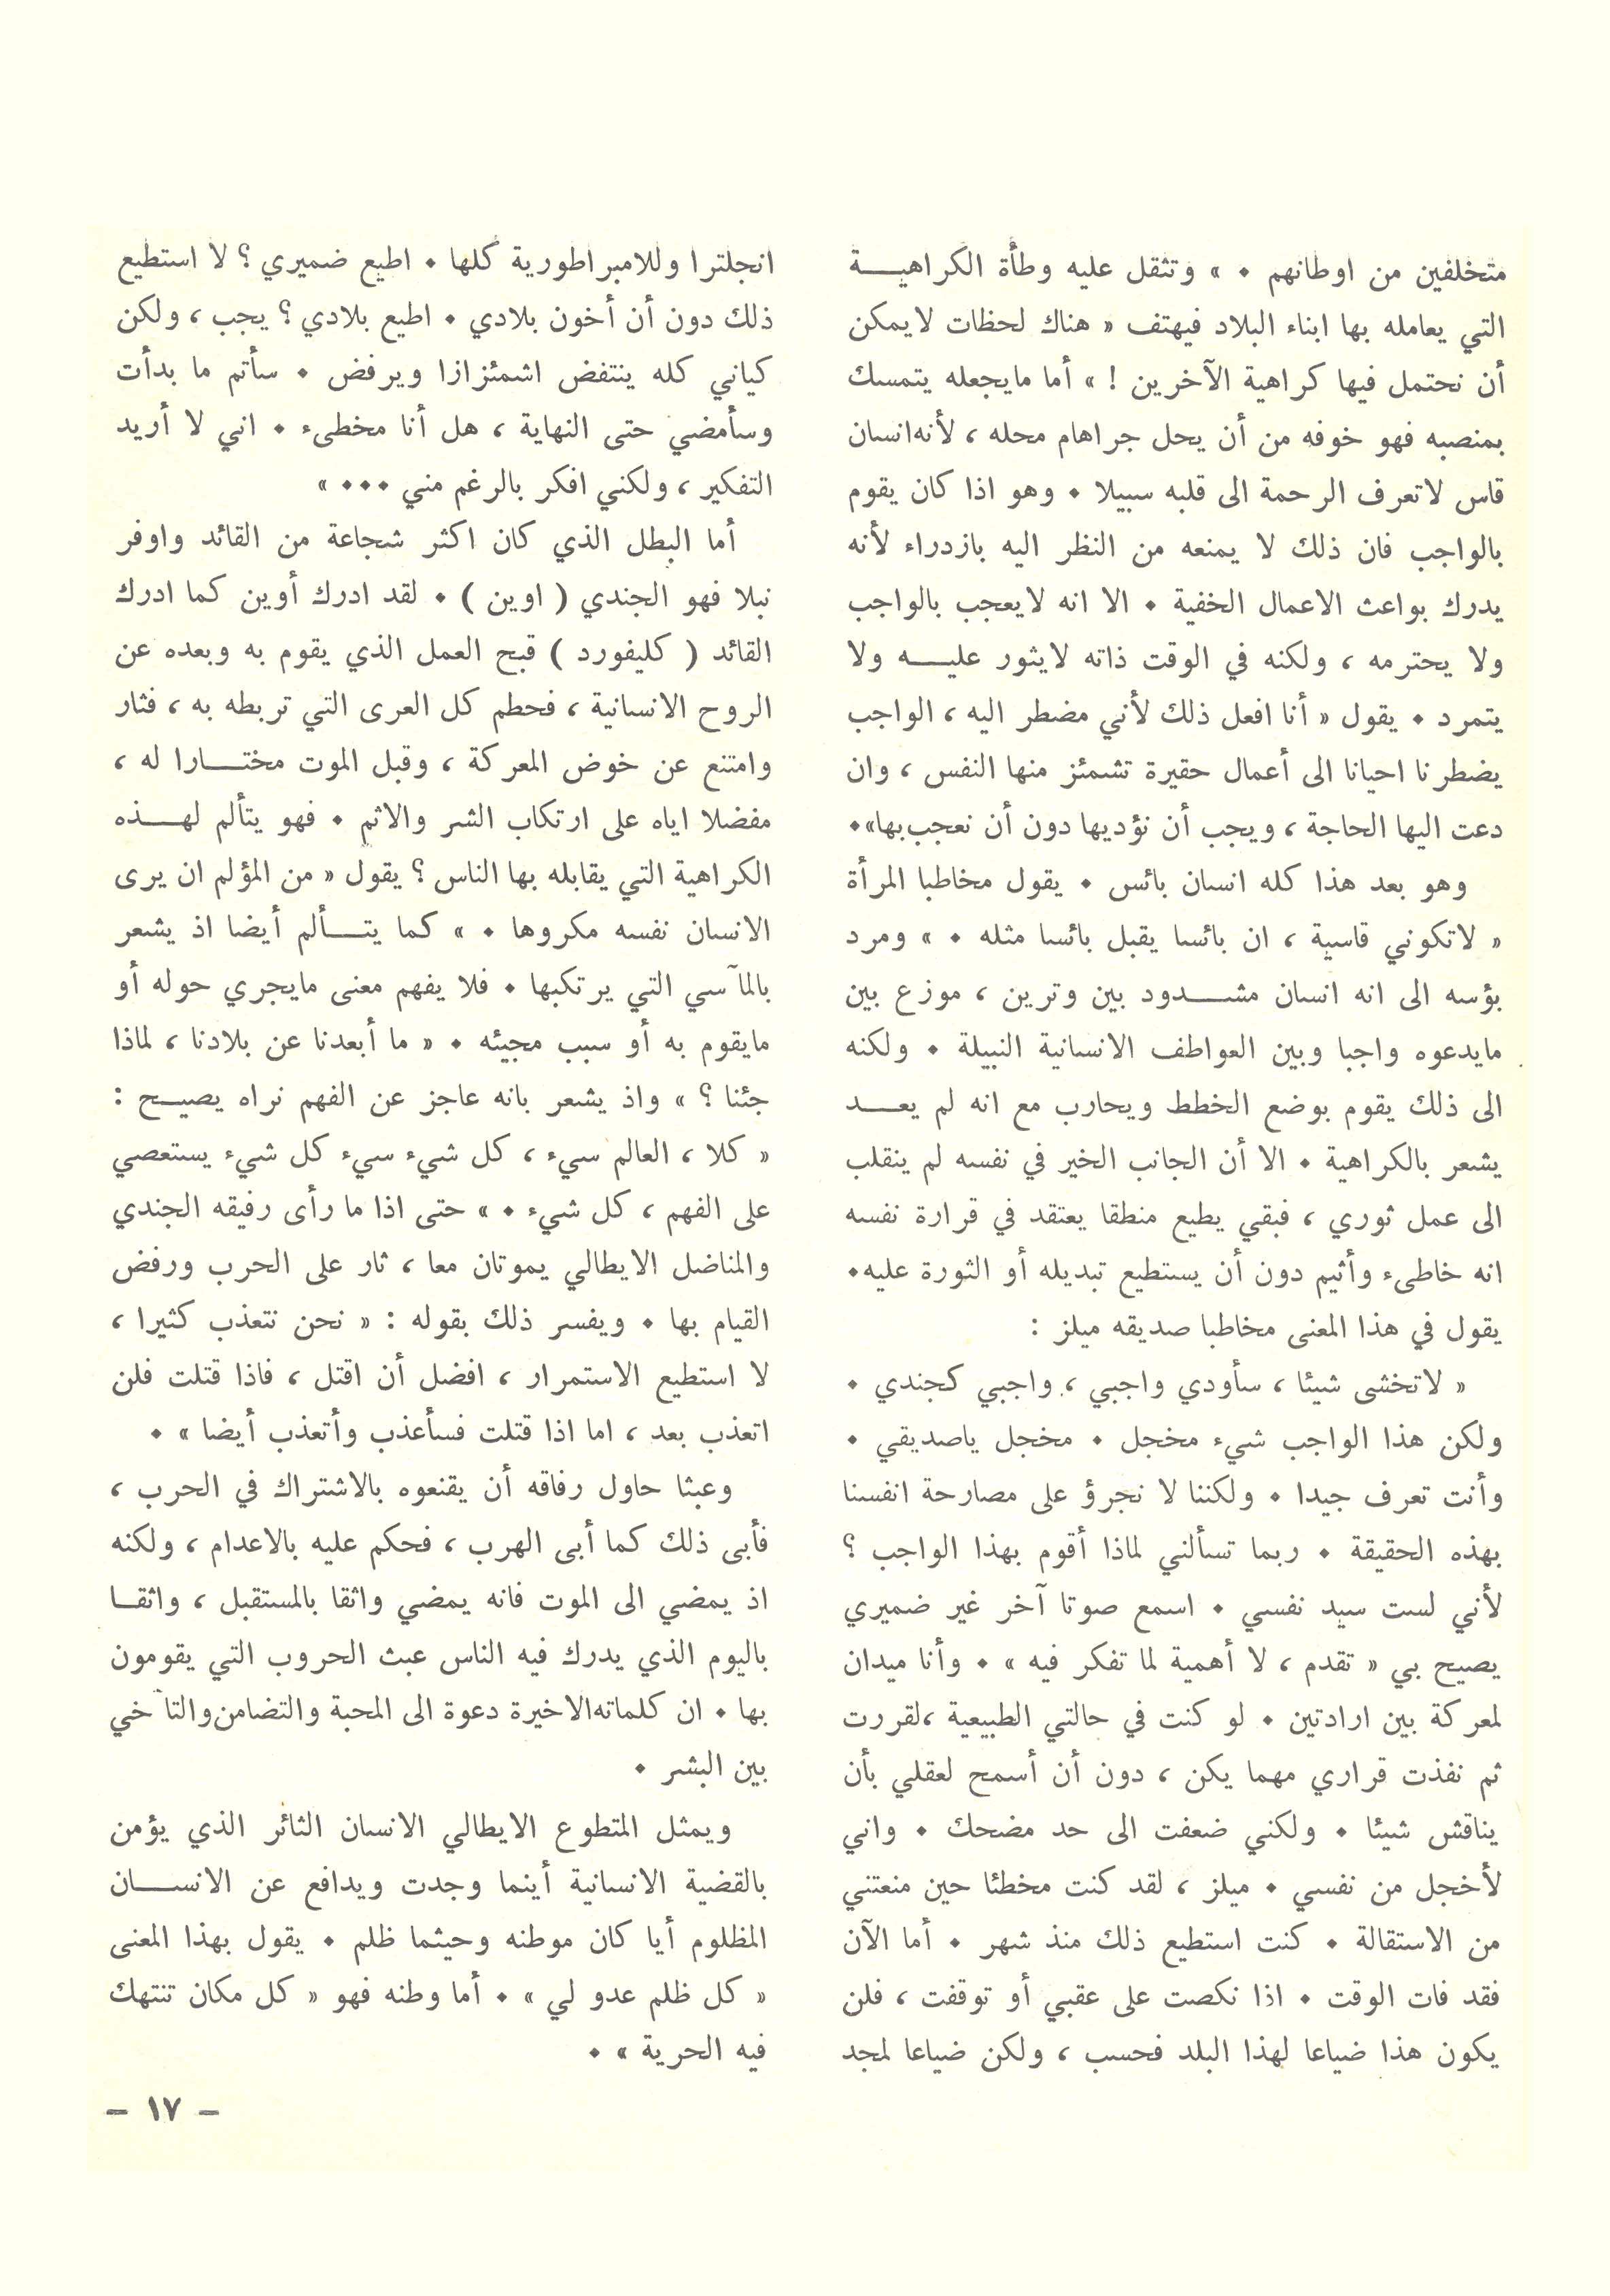 متخلفين من اوطانهم . » وتثقل عليه وطأة الكراهيـــة
التي يعامله بها ابناء البلاد فيهتف « هناك لحظات لايمكن
أن نحتمل فيها كراهية الآخرين ! » أما مايجعله يتمسك
بمنصبه فهو خوفه من أن يحل جراهام محله ، لأنه انسان
قاس لاتعرف الرحمة الى قلبه سبيلا . وهو اذا كان يقوم
بالواجب فان ذلك لا يمنعه من النظر اليه بازدراء لأنه
يدرك بواعث الاعمال الخفية . الا انه لايعجب بالواجب
ولا يحترمه ، ولكنه في الوقت ذاته لايثور عليـــه ولا
يتمرد . يقول « أنا افعل ذلك لأني مضطر اليه ، الواجب
يضطرنا احيانا الى أعمال حقيرة تشمئز منها النفس ، وان
دعت اليها الحاجة ، ويجب أن نؤديها دون أن نعجب بها».
وهو بعد هذا كله انسان بائس . يقول مخاطبا المرأة
« لاتكوني قاسية ، ان بائسا يقبل بائسا مثله . » ومرد
بؤسه الى انه انسان مشـــدود بين وترين ، موزع بين
مايدعوه واجبا وبين العواطف الانسانية النبيلة . ولكنه
الى ذلك يقوم بوضع الخطط ويحارب مع انه لم يعـــد
يشعر بالكراهية . الا أن الجانب الخير في نفسه لم ينقلب
الى عمل ثوري ، فبقي يطيع منطقا يعتقد في قرارة نفسه
انه خاطىء وأثيم دون أن يستطيع تبديله أو الثورة عليه.
يقول في هذا المعنى مخاطبا صديقه ميلز :
« لاتخشى شيئا ، سأودي واجبي ، واجبي كجندي .
ولكن هذا الواجب شيء مخجل . مخجل ياصديقي .
وأنت تعرف جيدا . ولكننا لا نجرؤ على مصارحة انفسنا
بهذه الحقيقة . ربما تسألني لماذا أقوم بهذا الواجب ؟
لأني لست سيد نفسي . اسمع صوتا آخر غير ضميري
يصيح بي « تقدم ، لا أهمية لما تفكر فيه » . وأنا ميدان
لمعركة بين ارادتين . لو كنت في حالتي الطبيعية ،لقررت
ثم نفذت قراري مهما يكن ، دون أن أسمح لعقلي بأن
يناقش شيئا . ولكني ضعفت الى حد مضحك . واني
لأخجل من نفسي . ميلز ، لقد كنت مخطئا حين منعتني
من الاستقالة . كنت استطيع ذلك منذ شهر . أما الآن
فقد فات الوقت . اذا نكصت على عقبي أو توقفت ، فلن
يكون هذا ضياعا لهذا البلد فحسب ، ولكن ضياعا لمجد
انجلترا وللامبراطورية كلها . اطيع ضميري ؟ لا استطيع
ذلك دون أن أخون بلادي . اطيع بلادي ؟ يجب ، ولكن
كياني كله ينتفض اشمئزازا ويرفض . سأتم ما بدأت
وسأمضي حتى النهاية ، هل أنا مخطىء . اني لا أريد
التفكير ، ولكني افكر بالرغم مني ... »
أما البطل الذي كان اكثر شجاعة من القائد واوفر
نبلا فهو الجندي ( اوين ) . لقد ادرك أوين كما ادرك
القائد ( كليفورد ) قبح العمل الذي يقوم به وبعده عن
الروح الانسانية ، فحطم كل العرى التي تربطه به ، فثار
وامتنع عن خوض المعركة ، وقبل الموت مختـــارا له ،
مفضلا اياه على ارتكاب الشر والاثم . فهو يتألم لهـــذه
الكراهية التي يقابله بها الناس ؟ يقول « من المؤلم ان يرى
الانسان نفسه مكروها . » كما يتـــألم أيضا اذ يشعر
بالمآسي التي يرتكبها . فلا يفهم معنى مايجري حوله أو
مايقوم به أو سبب مجيئه . « ما أبعدنا عن بلادنا ، لماذا
جئنا ؟ » واذ يشعر بانه عاجز عن الفهم نراه يصيـــح :
« كلا ، العالم سيء ، كل شيء سيء كل شيء يستعصي
على الفهم ، كل شيء . » حتى اذا ما رأى رفيقه الجندي
والمناضل الايطالي يموتان معا ، ثار على الحرب ورفض
القيام بها . ويفسر ذلك بقوله : « نحن نتعذب كثيرا ،
لا استطيع الاستمرار ، افضل أن اقتل ، فاذا قتلت فلن
اتعذب بعد ، اما اذا قتلت فسأعذب وأتعذب أيضا » .
وعبثا حاول رفاقه أن يقنعوه بالاشتراك في الحرب ،
فأبى ذلك كما أبى الهرب ، فحكم عليه بالاعدام ، ولكنه
اذ يمضي الى الموت فانه يمضي واثقا بالمستقبل ، واثقـــا
باليوم الذي يدرك فيه الناس عبث الحروب التي يقومون
بها . ان كلماته الاخيرة دعوة الى المحبة والتضامن والتآخي
بين البشر .
ويمثل المتطوع الايطالي الانسان الثائر الذي يؤمن
بالقضية الانسانية أينما وجدت ويدافع عن الانســـان
المظلوم أيا كان موطنه وحيثما ظلم . يقول بهذا المعنى
« كل ظلم عدو لي » . أما وطنه فهو « كل مكان تنتهك
فيه الحرية » .
- ١٧ -